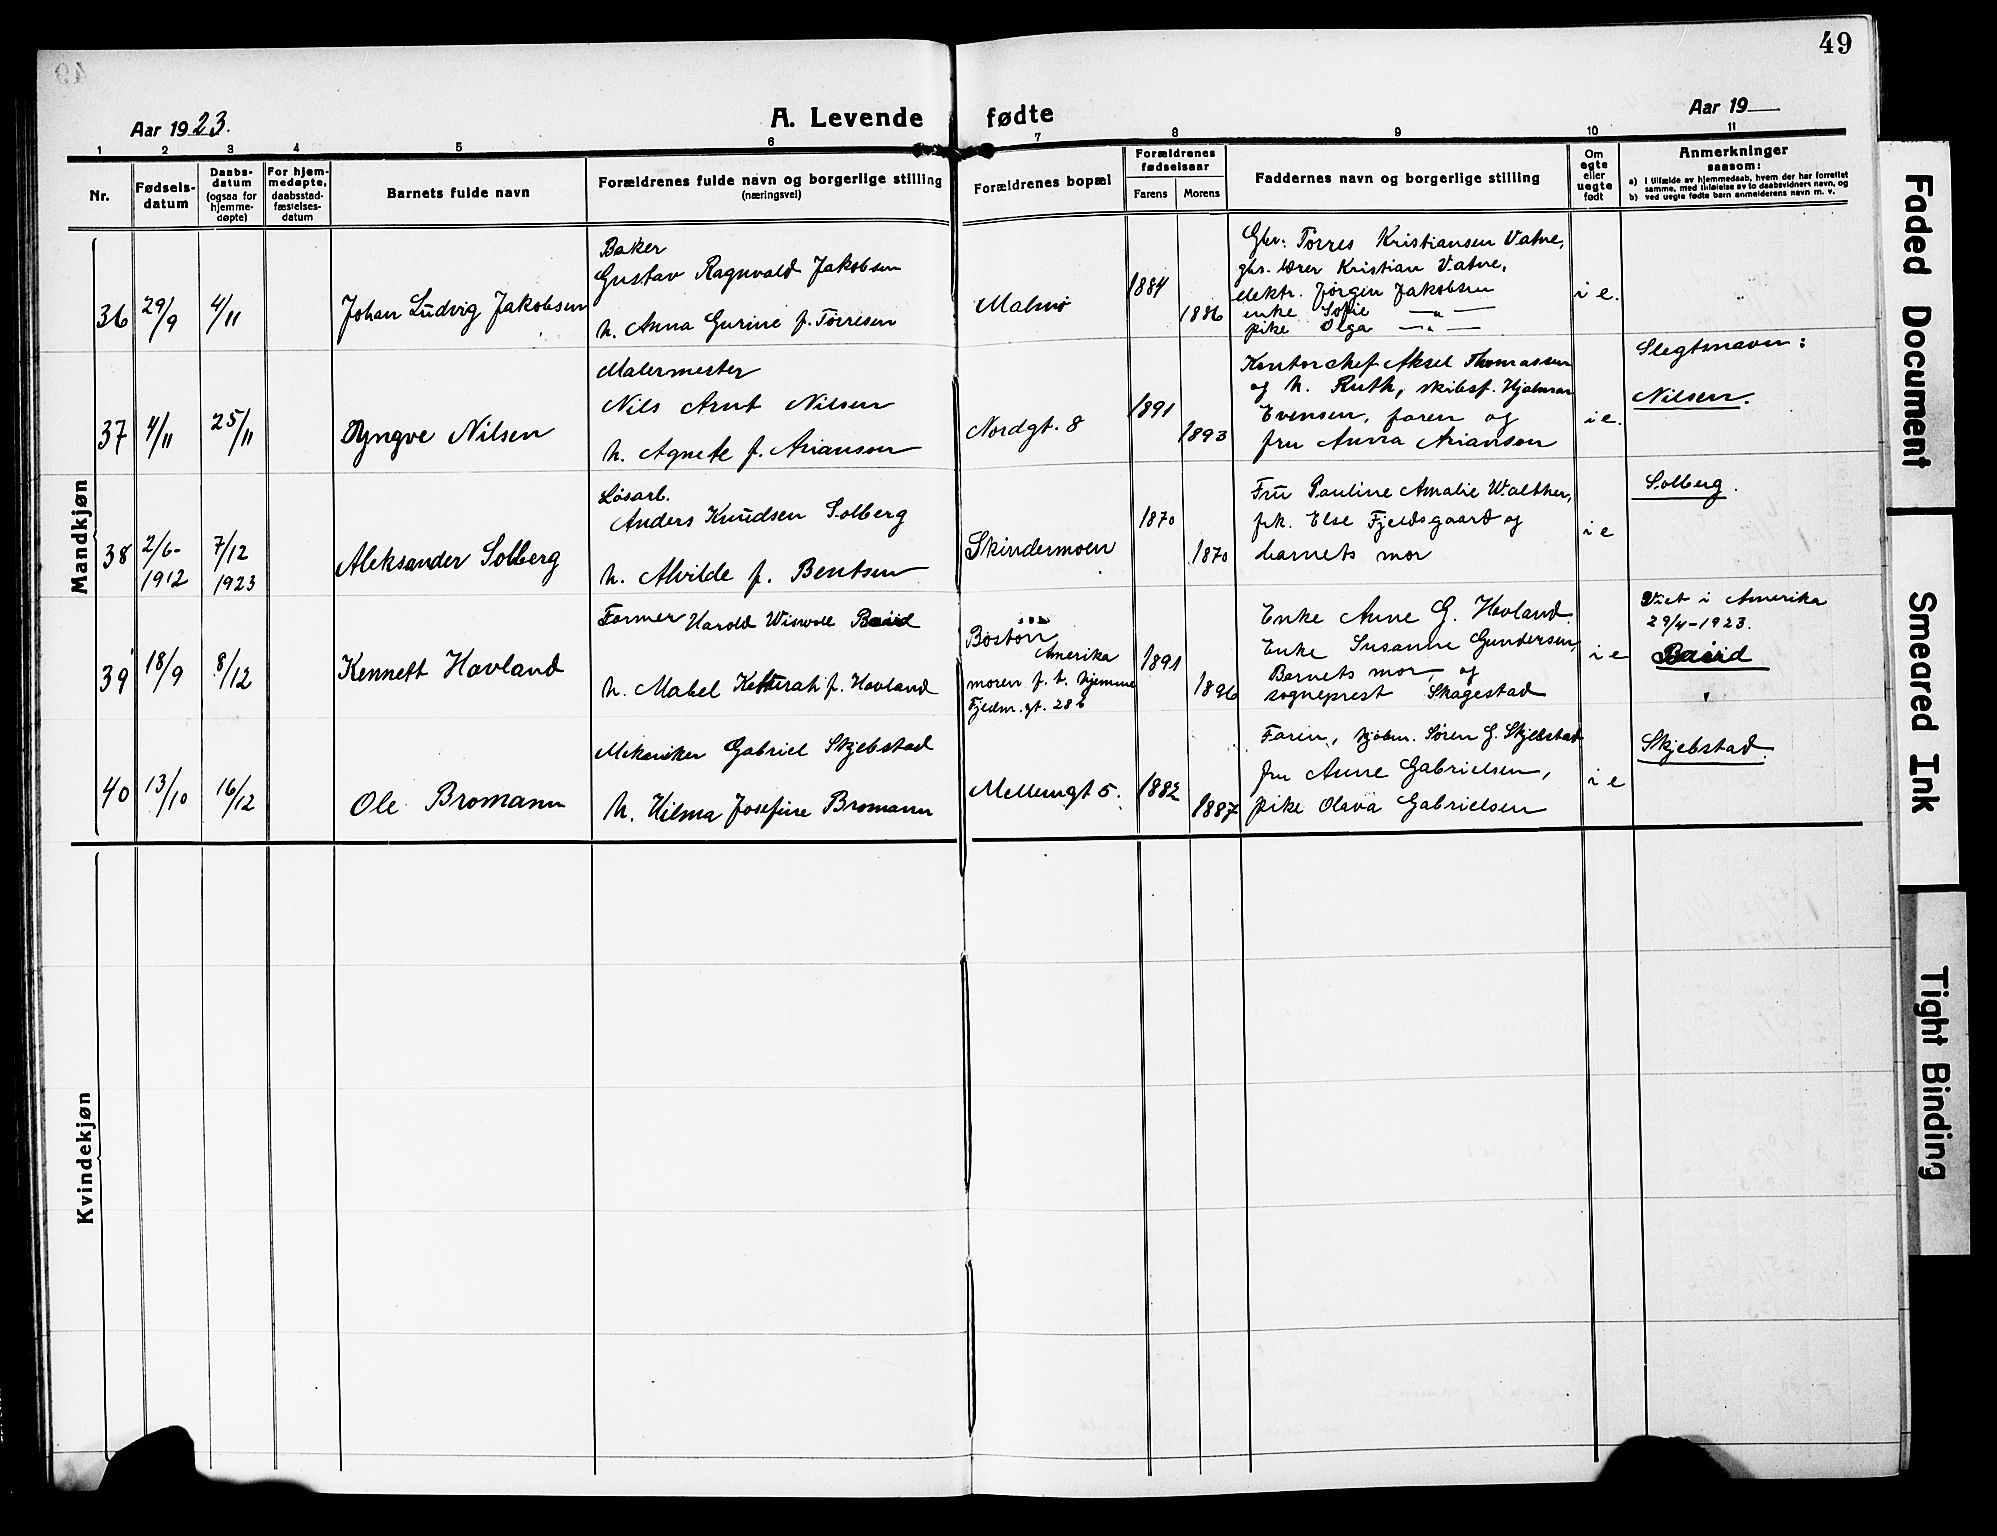 49
Aar 1923.
A. Levende fødte
Aar 19
1 2 3 4 5 6 7 8 9 10 11
Nr.
Fødsels-
datum
Daabs-
datum
(ogsaa for
hjemme-
døpte)
For hjem-
medøpte,
daabsstad-
fæstelses-
datum
Barnets fulde navn
Forældrenes fulde navn og borgerlige stilling
(næringsvei)
Forældrenes bopæl
Forældrenes
fødselsaar
Farens Morens
Faddernes navn og borgerlige stilling
Om
egte
eller
uegte
født
Anmerkninger
saasom:
a) I tilfælde av hjemmedaab, hvem der har forrettet
samme, med tilføielse av to daabsvidners navn, og
b) ved uegte fødte barn anmelderens navn m. v.
Mandkjøn
36
29/9
4/11
Johan Ludvig Jakobsen
Baker
Gustav Ragnvald Jakobsen
h. Anna Gurine f. Torresen
Malmø
1884
1886
Gbr: Torres Kristiansen Vatne,
gbr. lærer Kristian Vatne,
elektr. Jørgen Jakobsen
enke Sofie — " —
pike Olga — " —
i e.
37
4/11
25/11
Yngve Nilsen
Malermester
Nils Arnt Nilsen
h. Agnete f. Arianson
Nordgt. 8
1891
1893
Kontorchef Aksel Thomassen
og h. Ruth, skibsf. Hjalmar
Evensen, faren og
fru Anna Arianson
i e.
Slegtsnavn:
Nilsen.
38
2/6-
1912
7/12
1923
Aleksander Solberg
Løsarb.
Anders Knudsen Solberg
h. Alvilde f. Bentsen
Skindermoen
1870
1870
Fru Pauline Amalie Walther,
frk. Else Fjeldsgaard og
barnets mor
i e
Solberg.
39
18/9
8/12
Kennett Havland
Former Harold Baird
h. Mabel f. Hovland
Boston
Amerika
moren f. t. hjemme
Fjeldm. gt. 28 b
1891
1896
Enke Anne G. Hovland.
Enke Susanne Gundersen,
Barnets mor, og
sogneprest Skagestad
i e
Viet i Amerika
29/4-1923.
Baird
40
13/10
16/12
Ole Bromann
Mekaniker Gabriel Skjebstad
h. Hilma Josefine Bromann
Mellemgt 5.
1882
1887
Faren, Søren G. Skjebstad
fru Anne Gabrielsen,
pike Olava Gabrielsen
i e
Skjebstad.
Kvindekjøn
Faded Document
Smeared Ink
Tight Binding